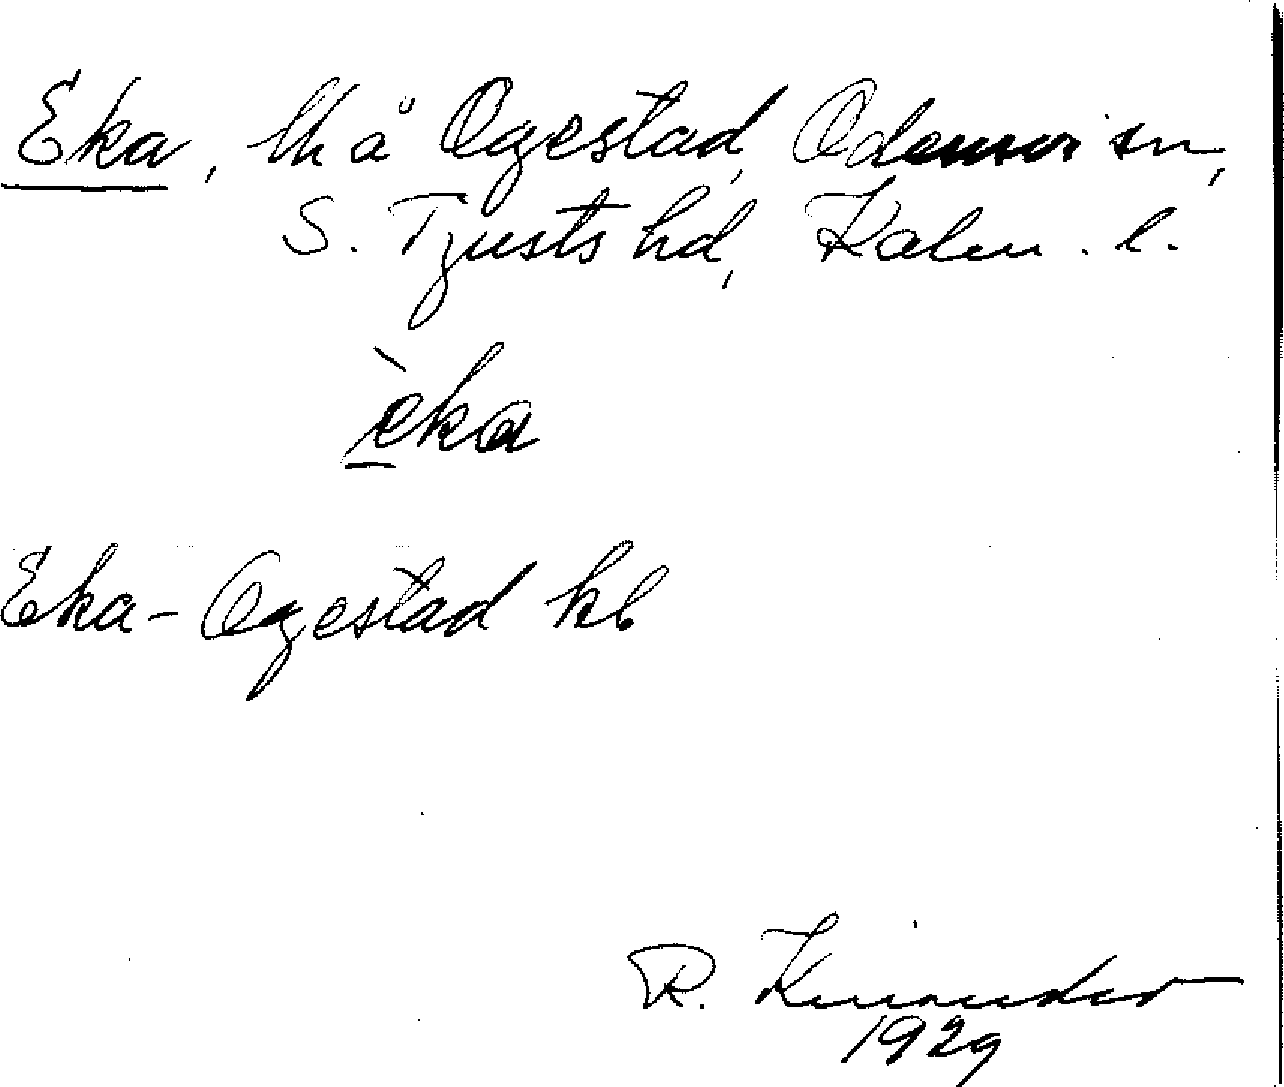 Eka, lh å Ogestad, Odensvi sn,
S. Tjusts hd, Kalm. l.
èka
Eka-Ogestad kb
R. Kinander
1929